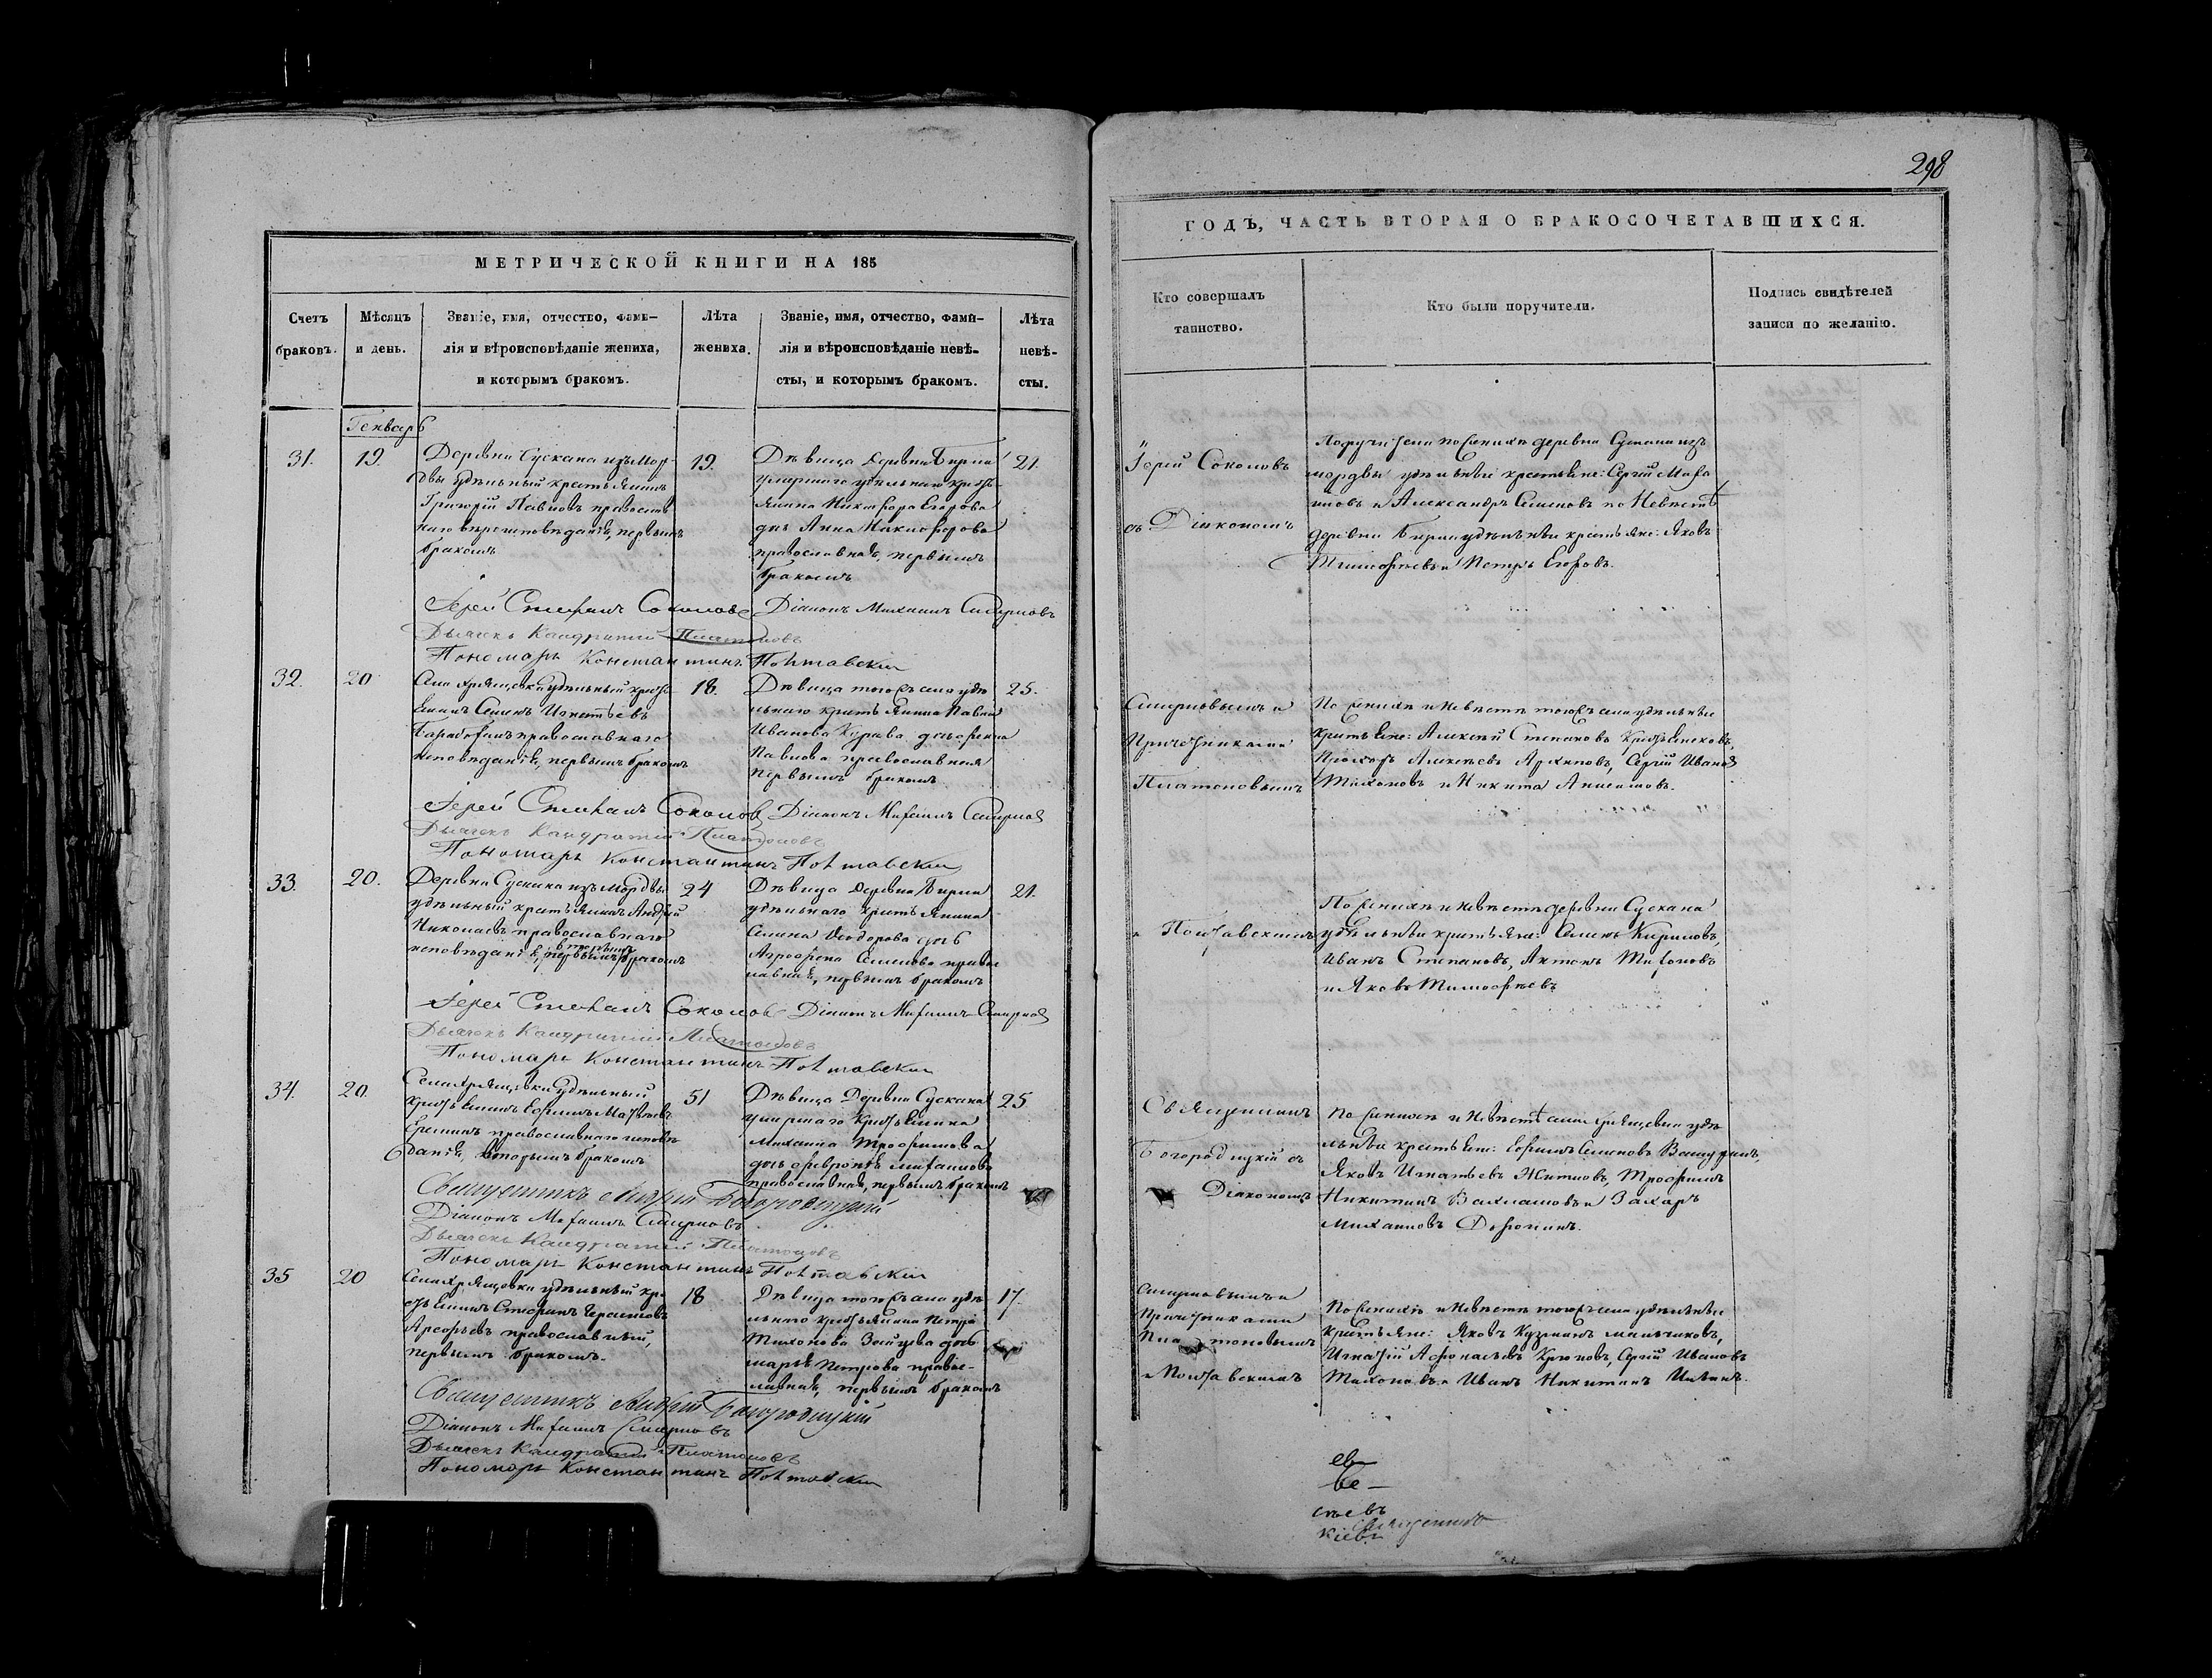 298
МЕТРИЧЕСКОЙ КНИГИ НА 185
Счетъ браковъ.
Мѣсяцъ и день.
Званіе, имя, отчество, фами-
лія и вѣроисповѣданіе жениха,
и которымъ бракомъ.
Лѣта жениха.
Званіе, имя, отчество, фами-
лія и вѣроисповѣданіе невѣ-
сты, и которымъ бракомъ.
Лѣта невѣ-
сты.
Генварь
31.
19.
Деревни Сускана изъ Мор-
двы удѣльный крестьянинъ
Григорій Павловъ православ
наго вѣроисповѣданія, первымъ
бракомъ
19.
Дѣвица деревни Бирли
умершаго удѣльнаго кресть
янина Никифора Егорова
дчь Анна Никифорова
православная, первымъ
бракомъ
21.
Іерей Стефанъ Соколовъ Діаконъ Михаилъ Смирновъ
Дьячекъ Кандратій Платоновъ
Пономарь Константинъ Полтавскій
32.
20
Села Хрящевки удѣльный кресть
янинъ Семенъ Игнатьевъ
православнаго
исповѣданія, первымъ бракомъ
18.
Дѣвица того же села удѣ
льнаго крестьянина Павла
Иванова дчь
Павлова православная
первымъ бракомъ
25.
Іерей Стефанъ Соколовъ Діаконъ Михаилъ Смирновъ
Дьячекъ Кандратій Платоновъ
Пономарь Константинъ Полтавскій
33.
20.
Деревни Сускана изъ мордвы
удѣльный крестьянинъ Андрей
Николаевъ православнаго
исповѣданія, вторымъ бракомъ
24
Дѣвица деревни Бирли
удѣльнаго крестьянина
Семена Ѳеодорова дчь
Агрофена Семенова право
славная, первымъ бракомъ
21.
Іерей Стефанъ Соколовъ Діаконъ Михаилъ Смирновъ
Дьячекъ Кандратій Платоновъ
Пономарь Константинъ Полтавскій
34.
20.
Села Хрящевки удѣльный
крестьянинъ Ефимъ Матвѣевъ
Ереминъ православнаго исповѣ
данія, вторымъ бракомъ
51
Дѣвица Деревни Сускана
умершаго крестьянина
Михаила Трофимова
дчь Февронія Михаилова
православная, первымъ бракомъ
25
Священникъ Андрей Богородицкій
Діаконъ Михаилъ Смирновъ
Дьячекъ Кандратій Платоновъ
Пономарь Константинъ Полтавскій
35
20
Села Хрящевки удѣльный кре
стьянинъ Стефанъ Герасимовъ
православный,
первымъ бракомъ.
18
Дѣвица того же села удѣ
льнаго крестьянина Петра
Тихонова Зайцева дчь
Марья Петрова право-
славная, первымъ бракомъ
17.
Священникъ Андрей Богородицкій
Діаконъ Михаилъ Смирновъ
Дьячекъ Кандратій Платоновъ
Пономарь Константинъ Полтавскій
ГОДЪ, ЧАСТЬ ВТОРАЯ О БРАКОСОЧЕТАВШИХСЯ.
Кто совершалъ
таинство.
Кто были поручители.
Подпись свидѣтелей
записи по желанію.
Іерей Соколовъ
съ Діакономъ
Поручители по женихѣ деревни Сускана изъ
мордвы удѣльные крестьяне: Сергій
и Александръ Семеновъ по Невѣстѣ
деревни Бирли удѣльные крестьяне: Яковъ
Тимофеевъ и Петръ Егоровъ.
Смирновымъ и
Причетниками
Платоновымъ
По женихѣ и Невѣстѣ того же села удѣльные
крестьяне: Алексѣй Степановъ
Прохоръ Алексѣевъ Архиповъ, Сергій Ивановъ
Тихоновъ и Никита Анисимовъ.
и Полтавскимъ
По женихѣ и невѣстѣ деревни Сускана
удѣльные крестьяне: Семенъ Кириловъ,
Иванъ Степановъ, Антонъ Тихоновъ
и Яковъ Тимофеевъ
Священникъ
Богородицкій съ
Діакономъ
По женихѣ и Невѣстѣ села Хрящевки удѣ
льные крестьяне: Ефимъ Семеновъ
Яковъ Игнатьевъ Трофимъ
Никитинъ и Захаръ
Михаиловъ
Смирновымъ и
Причетниками
Платоновымъ
и Полтавскимъ
По женихѣ и Невѣстѣ того же села удѣльные
крестьяне: Яковъ Кузминъ Мальчиковъ,
Игнатій Афонасьевъ Крюковъ, Сергій Ивановъ
Тихоновъ и Иванъ Никитинъ